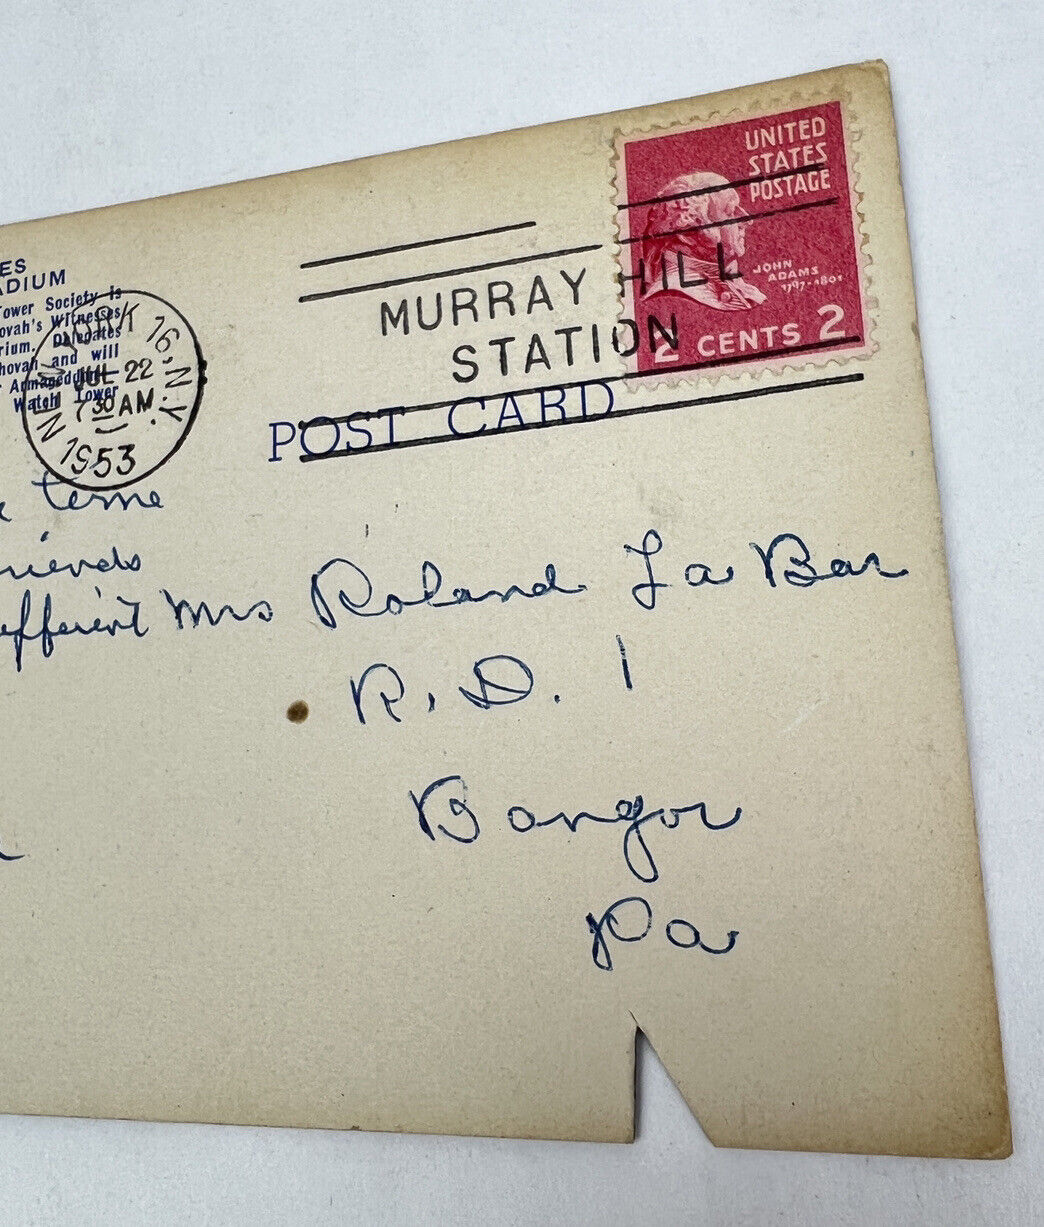 UNITED
STATES
POSTAGE
JOHN
ADAMS
1797-1801
2 CENTS 2
MURRAY HILL
STATION
POST CARD
ES
ADIUM
Tower Society is
ovah's Witnesses
rium. Delegates
hovah and will
Armageddon
Watch Tower
NEW YORK 16, N.Y.
JUL 22
7 30 AM
1953
time
riends
Mrs Roland La Bar
R. D. 1
Bangor
Pa